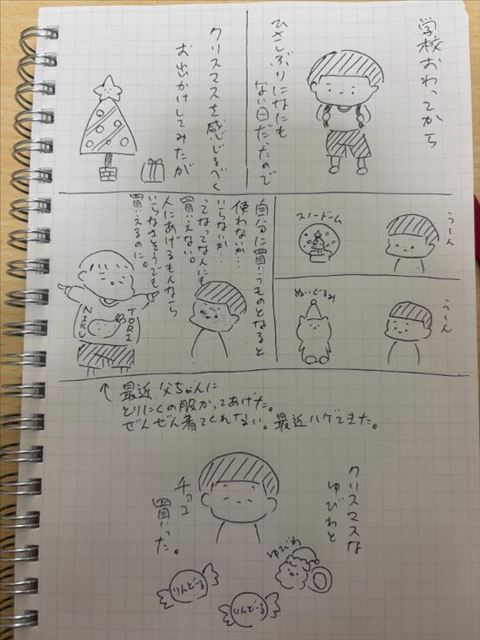 学校おわってから
ひさしぶりになにも
ない日だったので
クリスマスを感じるべく
お出かけしてみたが
うーん
スノードーム
うーん
ぬいぐるみ
自分に買うものとなると
使わないか…
いらないか…
ってなってなんにも
買えない。
人にあげるもんなら
いらなさそうでも
買えるのに。
TORI
NIKU
↑最近、父ちゃんに
とりにくの服かってあげた。
ぜんぜん着てくれない。最近ハゲてきた。
クリスマスな
ゆびわと
チョコ
買った。
ゆびわ
りんどーる
りんどーる